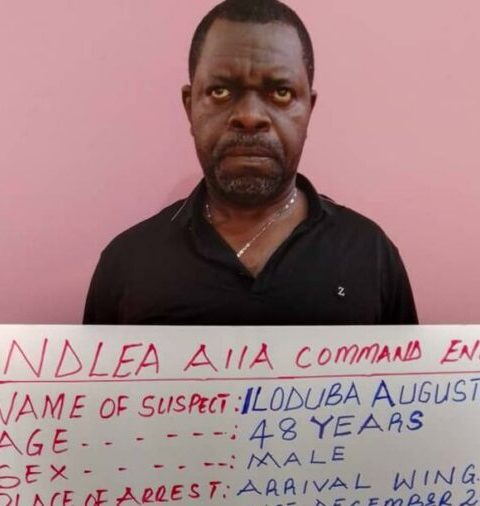 Z
NDLEA AIIA COMMAND EN
NAME OF SUSPECT: ILODUBA AUGUST
AGE - - - - - - -: 48 YEARS
SEX - - - - --: MALE
PLACE OF ARREST: ARRIVAL WING
DECEMBER 2